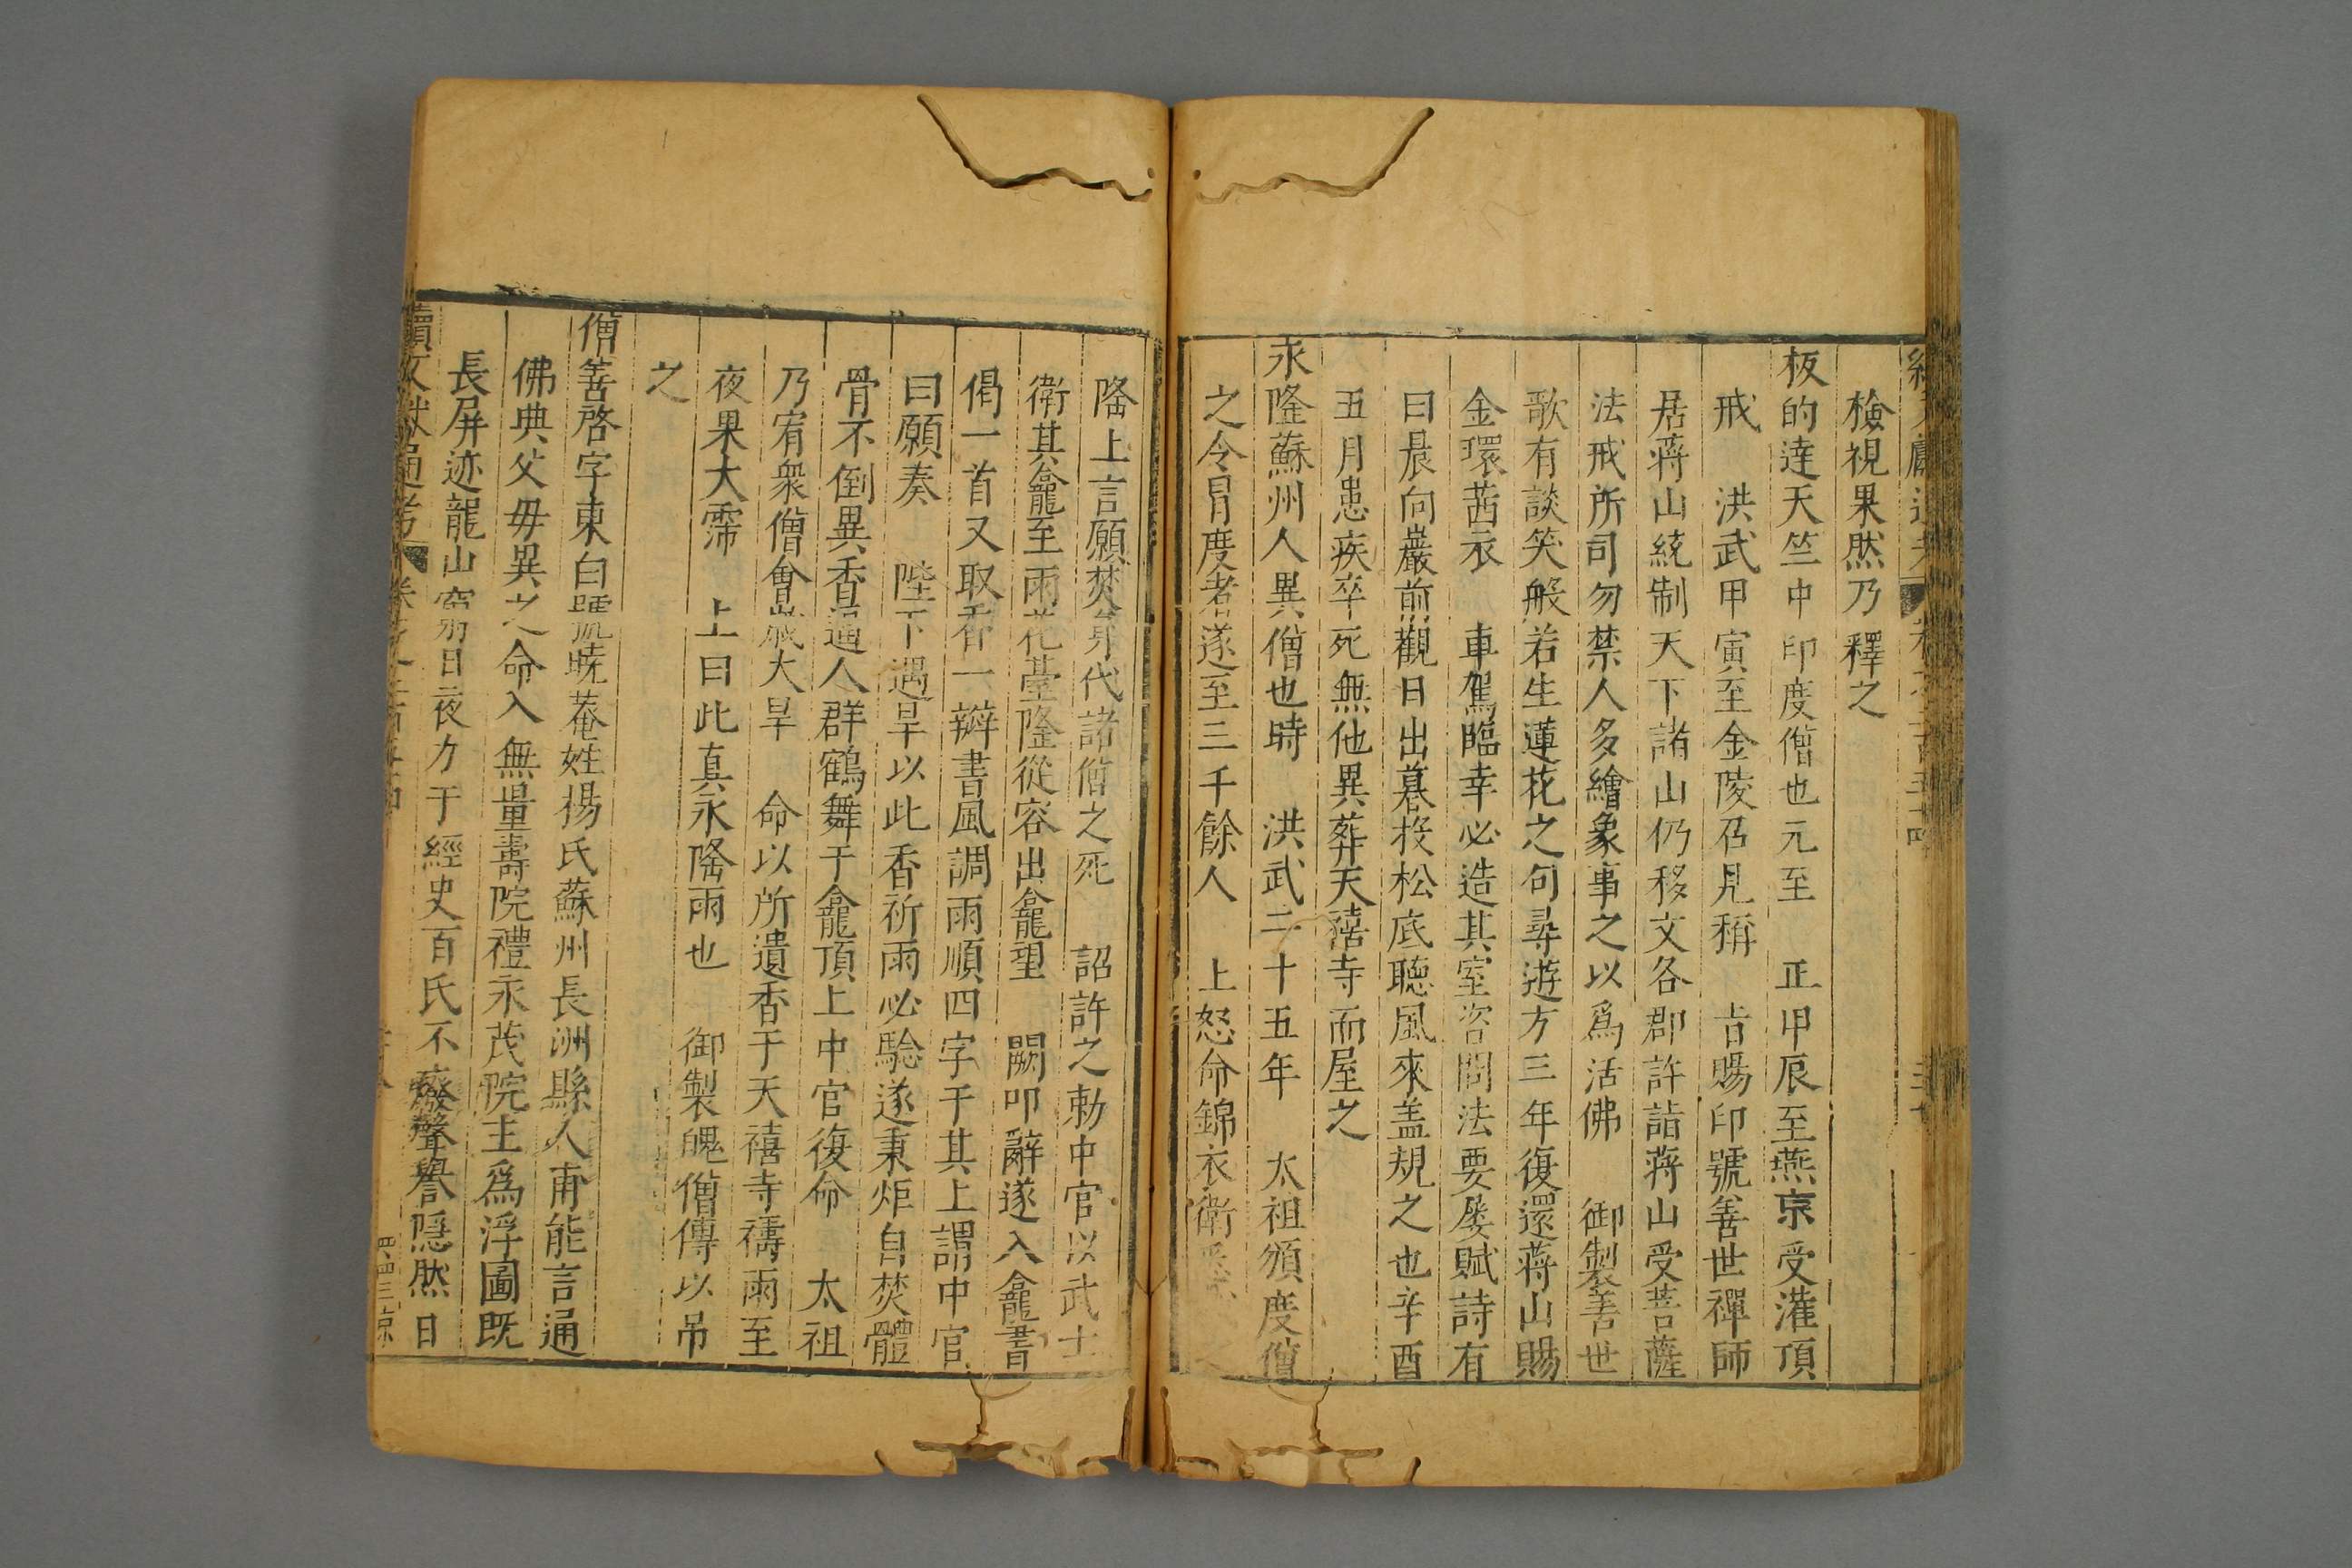 檢視果然乃釋之
板的達天竺中印度僧也元至 正甲辰至燕京受灌頂
戒 洪武甲寅至金陵召見稱 旨賜印號善世禪師
居蔣山統制天下諸山仍移文各郡許詣蔣山受菩薩
法戒所司勿禁人多繪象事之以爲活佛 御製善世
歌有談笑般若生蓮花之句尋遊方三年復還蔣山賜
金環茜衣 車駕臨幸必造其室咨問法要屡賦詩有
曰晨向巖前觀日出暮投松底聽風來盖規之也辛酉
五月患疾卒死無他異葬天禧寺而屋之
永隆蘇州人異僧也時 洪武二十五年 太祖頒度僧
之令冐度者遂至三千餘人 上怒命錦衣衛
隆上言願焚身代諸僧之死 詔許之勅中官以武士
衛其龕至雨花臺隆從容出龕望 闕叩辭遂入龕書
偈一首又取香一瓣書風調雨順四字于其上謂中官
曰願奏 陛下遇旱以此香祈雨必驗遂秉炬自焚體
骨不倒異香逼人群鶴舞于龕頂上中官復命 太祖
乃宥衆僧會歲大旱 命以所遺香于天禧寺禱雨至
夜果大霈 上曰此真永隆雨也 御製醜僧傳以吊
之
僧善啓字東白號曉菴姓揚氏蘇州長洲縣人甫能言通
佛典父毋異之命入無量壽院禮永茂院主爲浮圖既
長屏迹龍山窮日夜力于經史百氏不廢聲譽隱然日
續文獻通考 卷之二百五十四